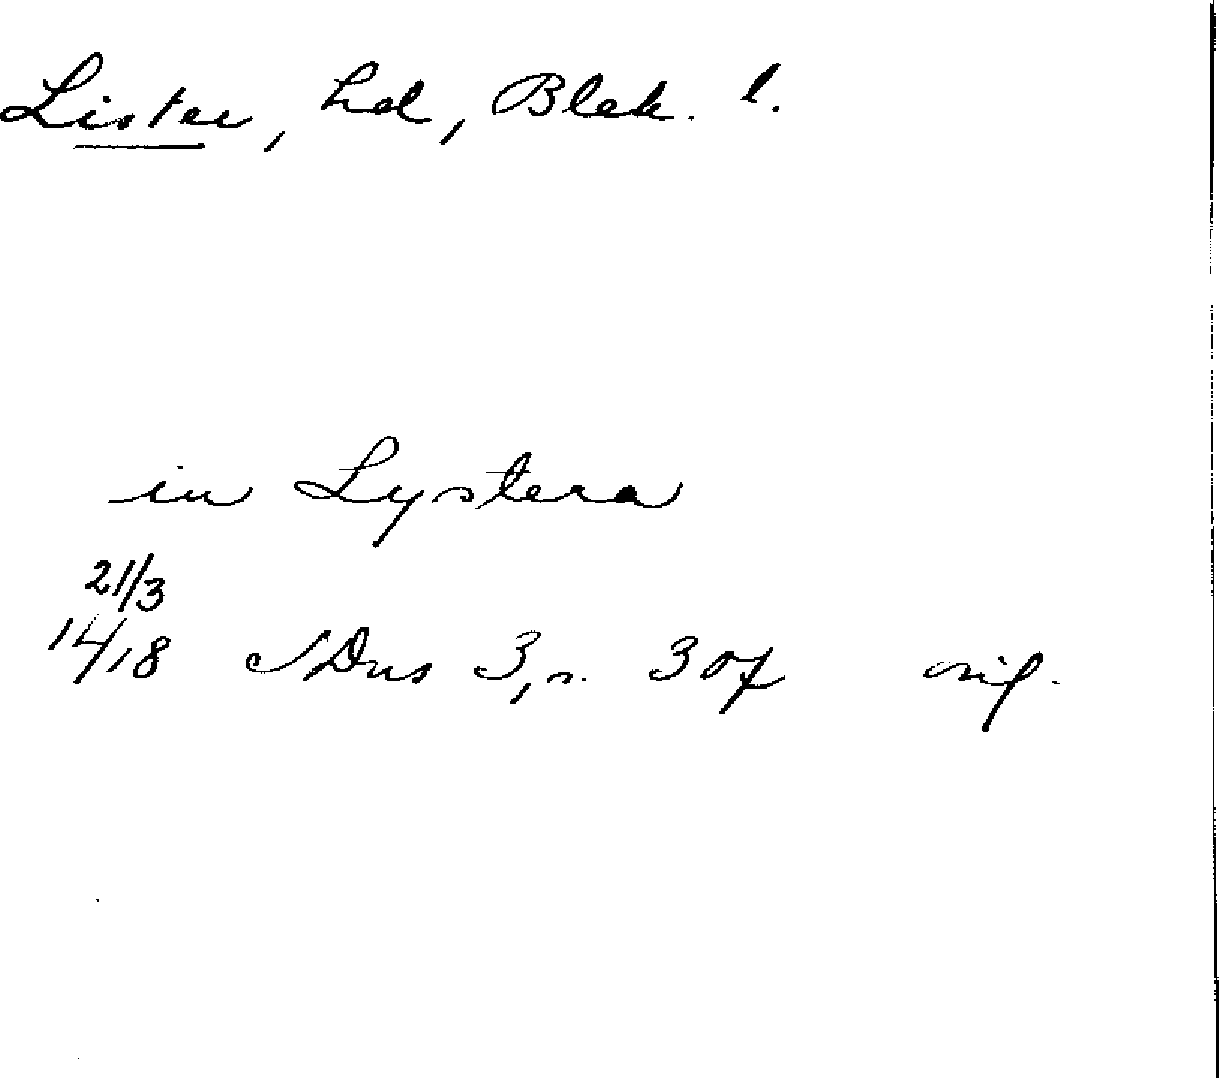 Lister, hd, Blek. l.
in Lystera
21/3
1418 SDns 3, s. 307 orig.